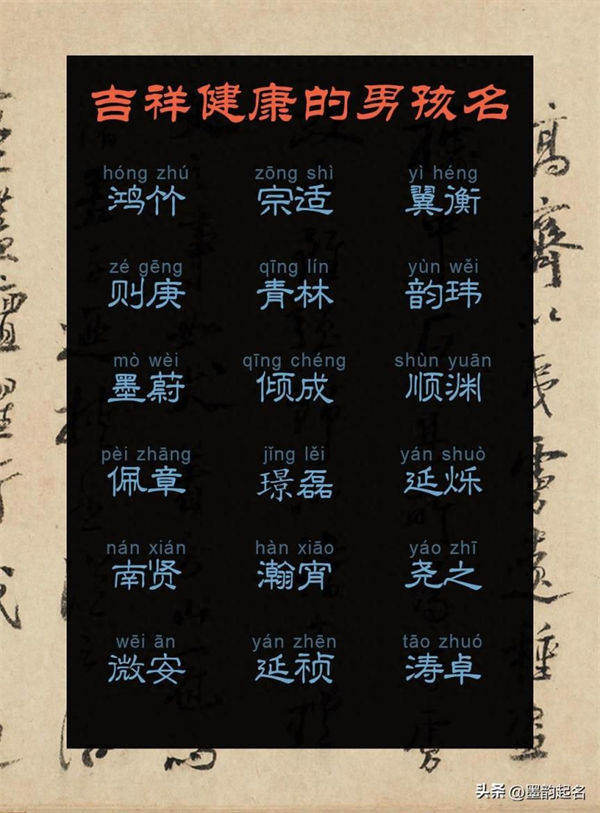 吉祥健康的男孩名
hóng zhú zōng shì yì héng
鸿竹 宗适 翼衡
zé gēng qīng lín yùn wěi
则庚 青林 韵玮
mò wèi qīng chéng shùn yuān
墨蔚 倾成 顺渊
pèi zhāng jǐng lěi yán shuò
佩章 璟磊 延烁
nán xián hàn xiāo yáo zhī
南贤 瀚宵 尧之
wēi ān yán zhēn tāo zhuó
微安 延祯 涛卓
头条 @墨韵起名